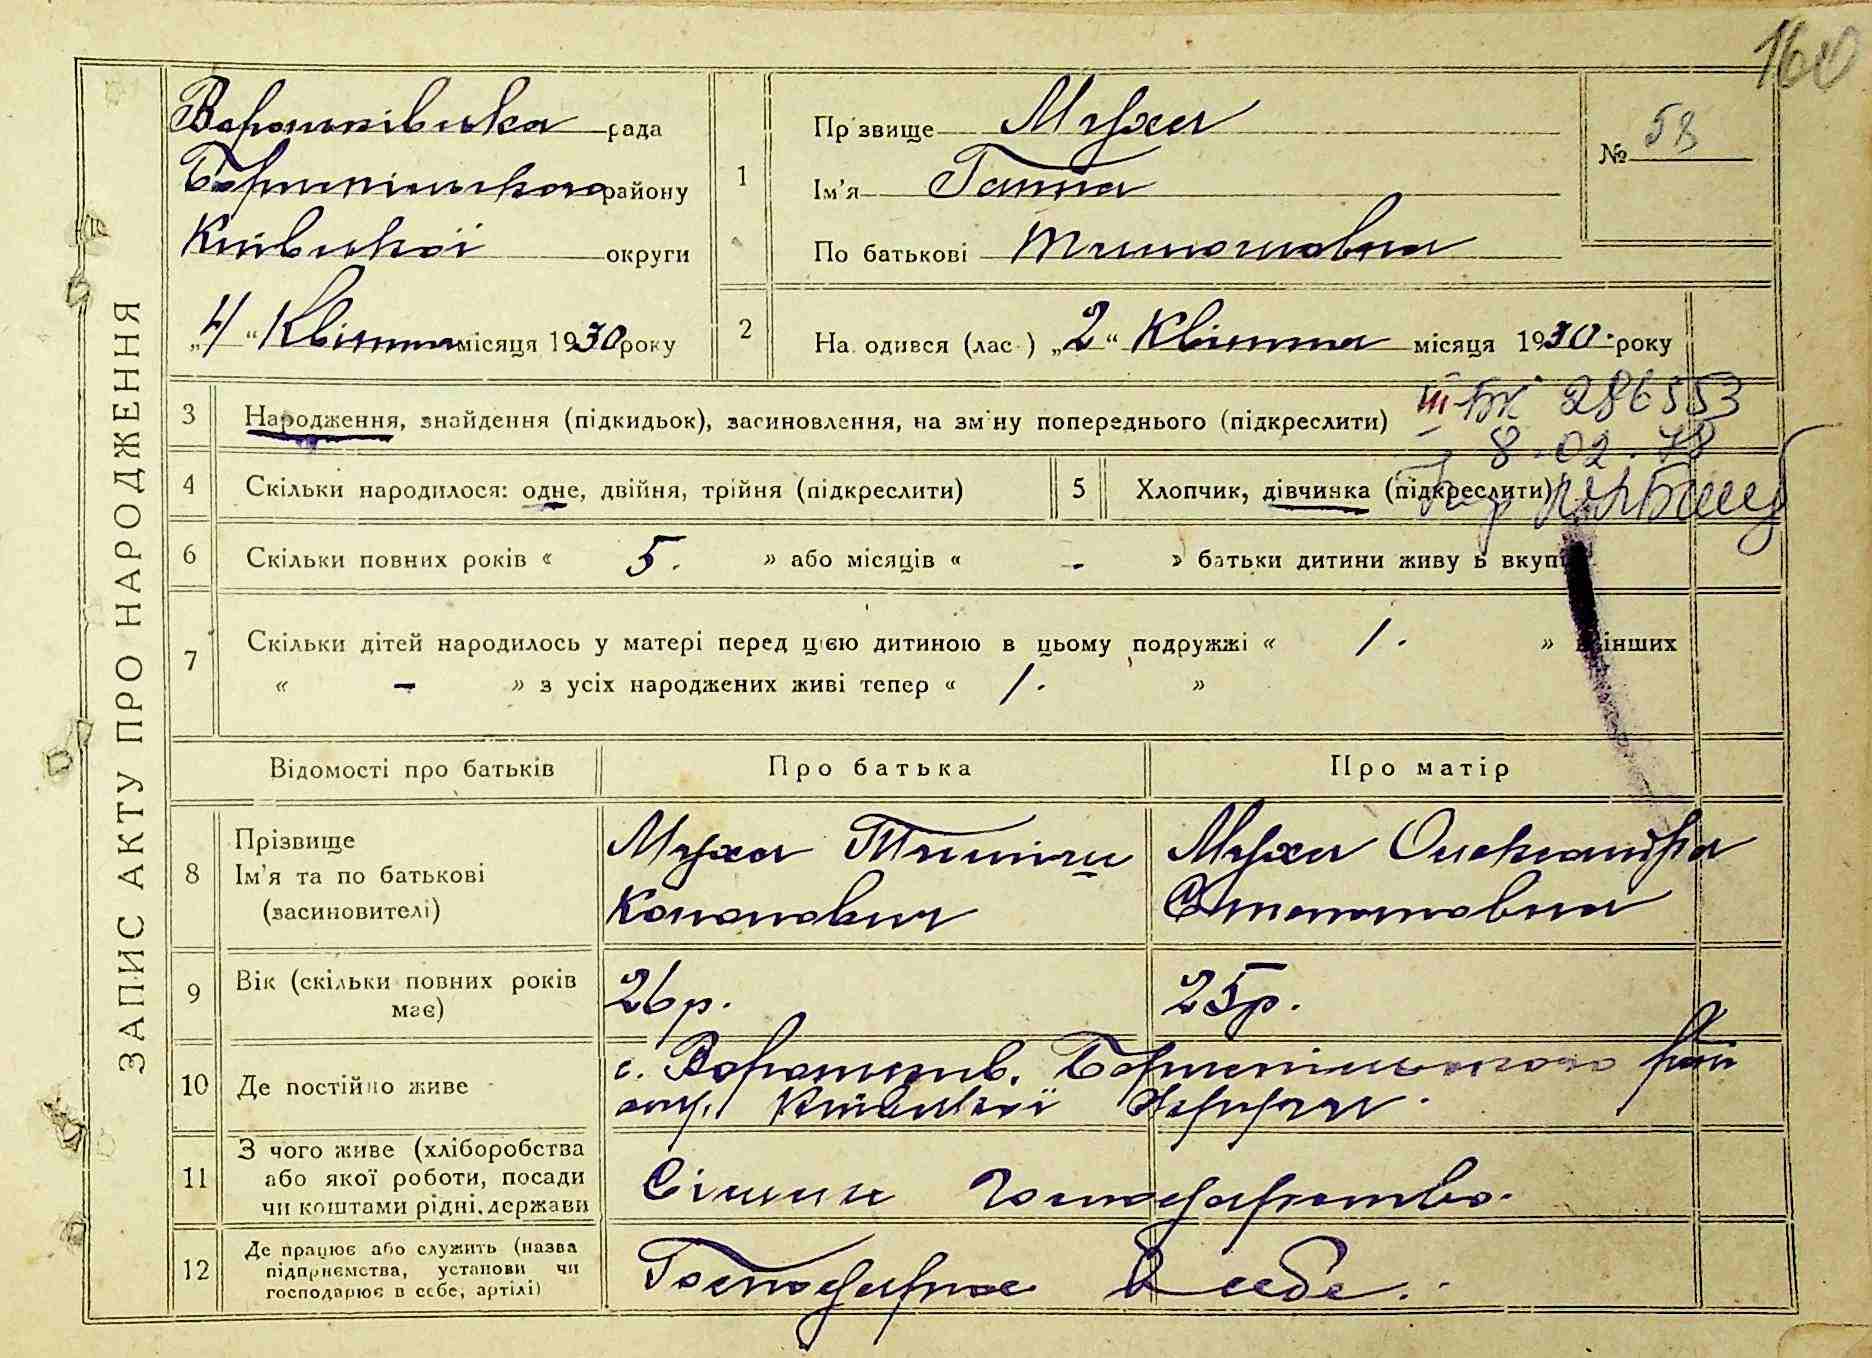 160
ЗАПИС АКТУ ПРО НАРОДЖЕННЯ
Вороньківська рада
Бориспільського району
Київської округи
„4“ Квітня місяця 1930 року
1
Прізвище Муха
Ім'я Ганна
По батькові Тимошовна
№ 58
2
На одився (лас ) „2“ Квітня місяця 1930 року
3 Народження, знайдення (підкидьок), засиновлення, на зм ну попереднього (підкреслити)
III-БК 286553
8-02-78
4 Скільки народилося: одне, двійня, трійня (підкреслити)
5 Хлопчик, дівчинка (підкреслити)
6 Скільки повних років « 5. » або місяців « - » батьки дитини живу ь вкупі
7 Скільки дітей народилось у матері перед цією дитиною в цьому подружжі « 1. » інших
« - » з усіх народжених живі тепер « 1. »
Відомості про батьків Про батька Про матір
8 Прізвище
Ім'я та по батькові
(засиновителі)
Муха Тиміш
Кононович
Муха Олександра
Степановна
9 Вік (скільки повних років
має)
26р. 25р.
10 Де постійно живе
с. Вороньків. Бориспільського рай
Київської Округи.
11 З чого живе (хліборобства
або якої роботи, посади
чи коштами рідні, держави
Сільське господарство.
12 Де працює або служить (назва
підприємства, установи чи
господарює в себе, артілі)
Господарює в себе.